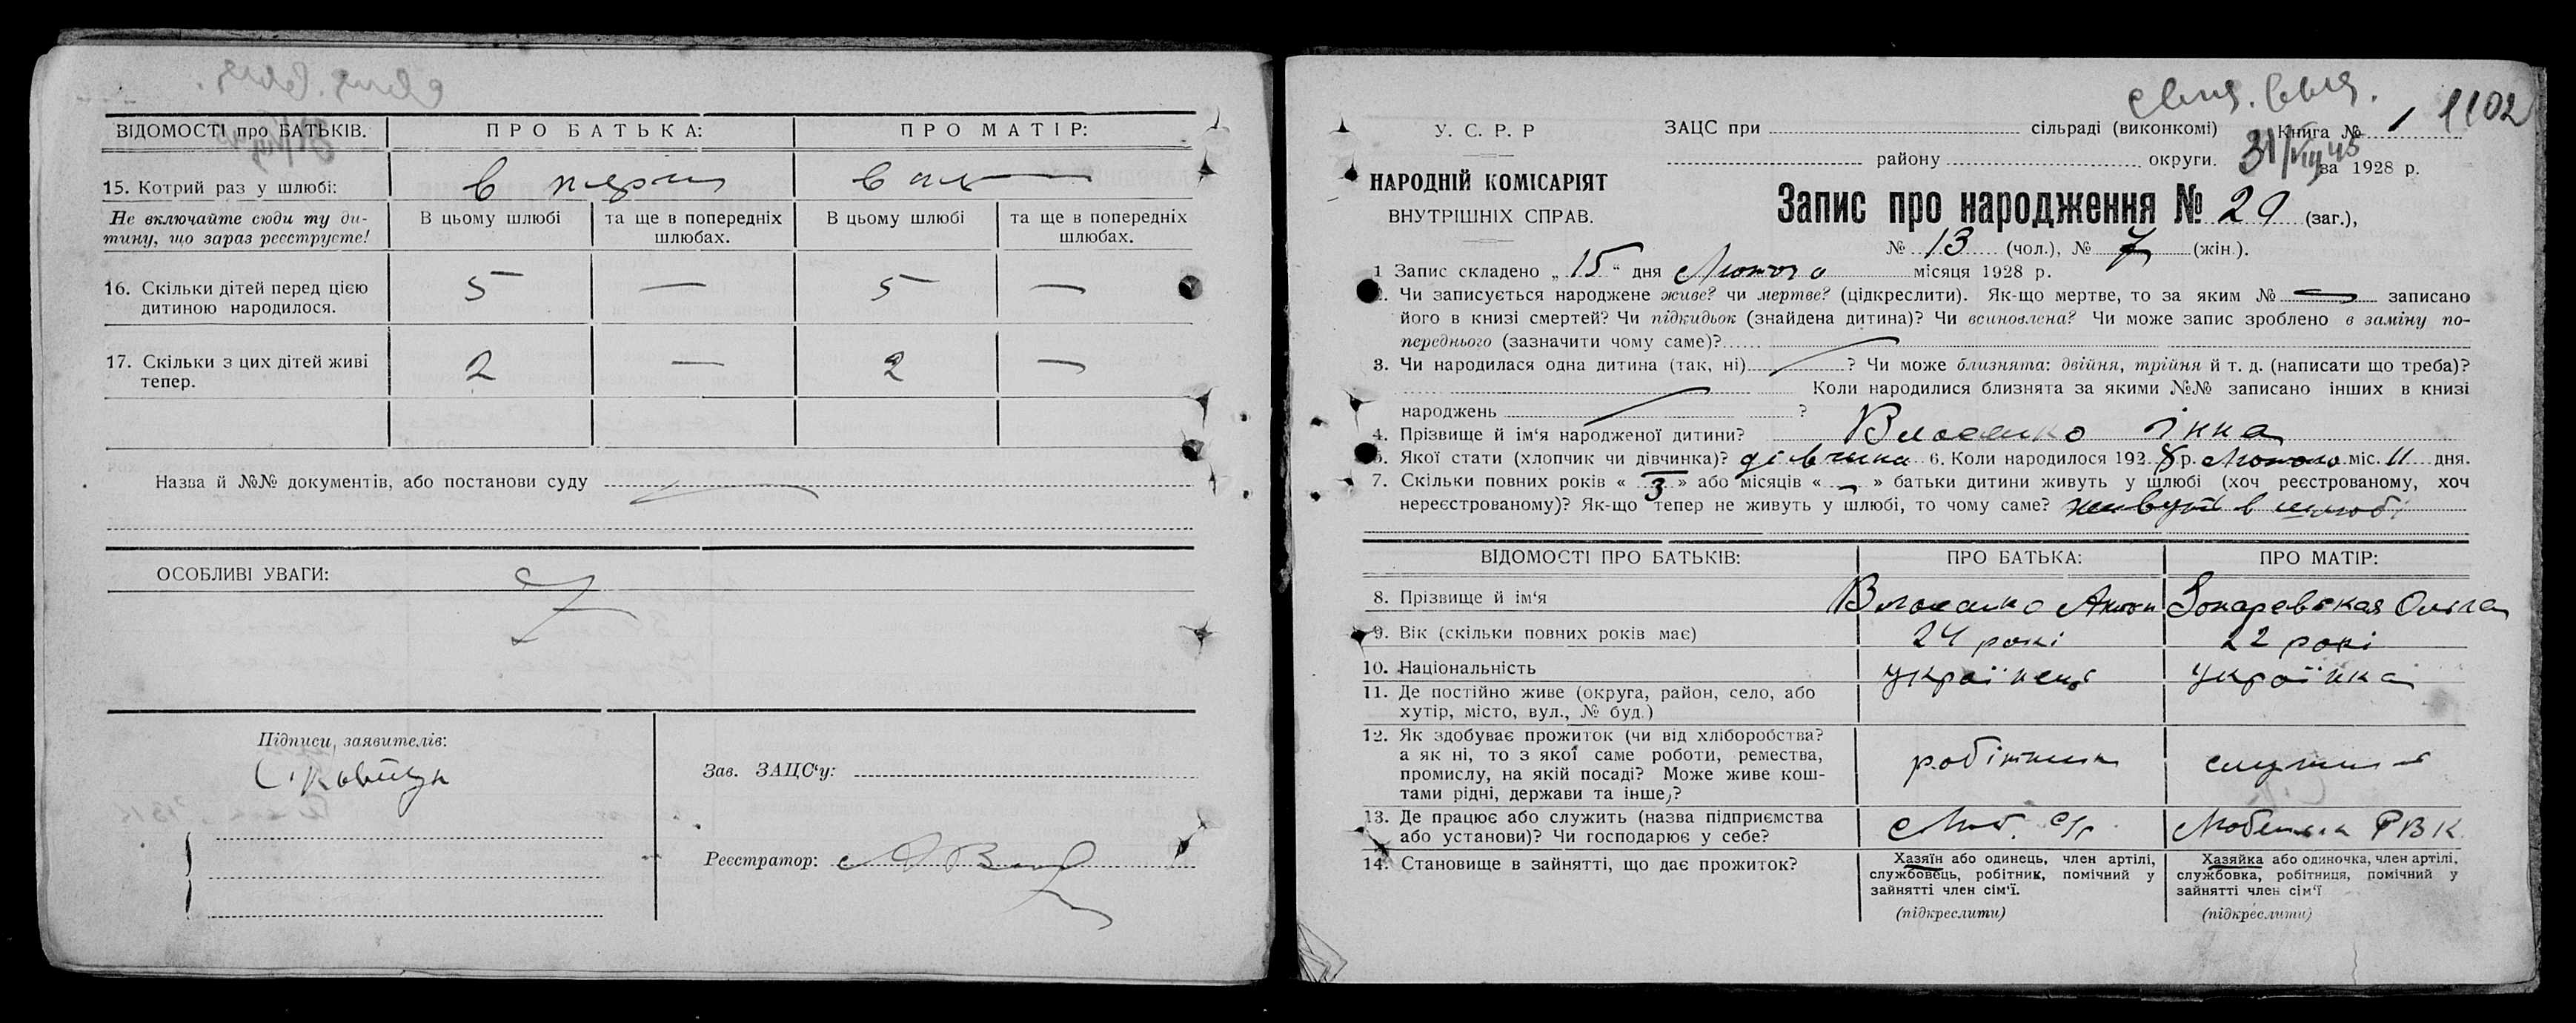 ВІДОМОСТІ про БАТЬКІВ. ПРО БАТЬКА: ПРО МАТІР:
15. Котрий раз у шлюбі: в перш
Не включайте сюди ту ди-
тину, що зараз реєструєте!
В цьому шлюбі та ще в попередніх шлюбах. В цьому шлюбі та ще в попередніх шлюбах.
16. Скільки дітей перед цією 5 — 5 —
дитиною народилося.
17. Скільки з цих дітей живі 2 — 2 —
тепер.
Назва й №№ документів, або постанови суду
ОСОБЛИВІ УВАГИ:
Підписи, заявителів:
Зав. ЗАЦС'у:
Реєстратор:
1102
У. С. Р. Р
НАРОДНІЙ КОМІСАРІЯТ
ВНУТРІШНІХ СПРАВ.
ЗАЦС при сільраді (виконкомі) Книга № 1
району округи. за 1928 р.
31/VIII 45
Запис про народження № 29 (заг.),
№ 13 (чол.), № 7 (жін.).
1 Запис складено „ 15 “ дня Лютого місяця 1928 р.
Чи записується народжене живе? чи мертве? (цідкреслити). Як-що мертве, то за яким № — записано
його в книзі смертей? Чи підкидьок (знайдена дитина)? Чи всиновлена? Чи може запис зроблено в заміну по-
переднього (зазначити чому саме)?
3. Чи народилася одна дитина (так, ні) ? Чи може близнята: двійня, трійня й т. д. (написати що треба)?
Коли народилися близнята за якими №№ записано інших в книзі
народжень ?
4. Прізвище й ім'я народженої дитини? Інна
Якої стати (хлопчик чи дівчинка)? дівчинка 6. Коли народилося 192 8 р. Лютого міс. 11 дня.
7. Скільки повних років « 3 » або місяців « — » батьки дитини живуть у шлюбі (хоч реєстрованому, хоч
нереєстрованому)? Як-що тепер не живуть у шлюбі, то чому саме? живуть в шлюбі
ВІДОМОСТІ ПРО БАТЬКІВ: ПРО БАТЬКА: ПРО МАТІР:
8. Прізвище й ім'я Антон Ольга
9. Вік (скільки повних років має) 24 рокі 22 рокі
10. Національність українець українка
11. Де постійно живе (округа, район, село, або
хутір, місто, вул., № буд.)
12. Як здобуває прожиток (чи від хліборобства?
а як ні, то з якої саме роботи, ремества,
промислу, на якій посаді? Може живе кош-
тами рідні, держави та інше,? робітник
13. Де працює або служить (назва підприємства
або установи)? Чи господарює у себе? РВК
14. Становище в зайнятті, що дає прожиток?
Хазяїн або одинець, член артілі,
службовець, робітник, помічний у
зайнятті член сім'ї.
(підкреслити)
Хазяйка або одиночка, член артілі,
службовка, робітниця, помічний у
зайнятті член сім'ї
(підкреслити)